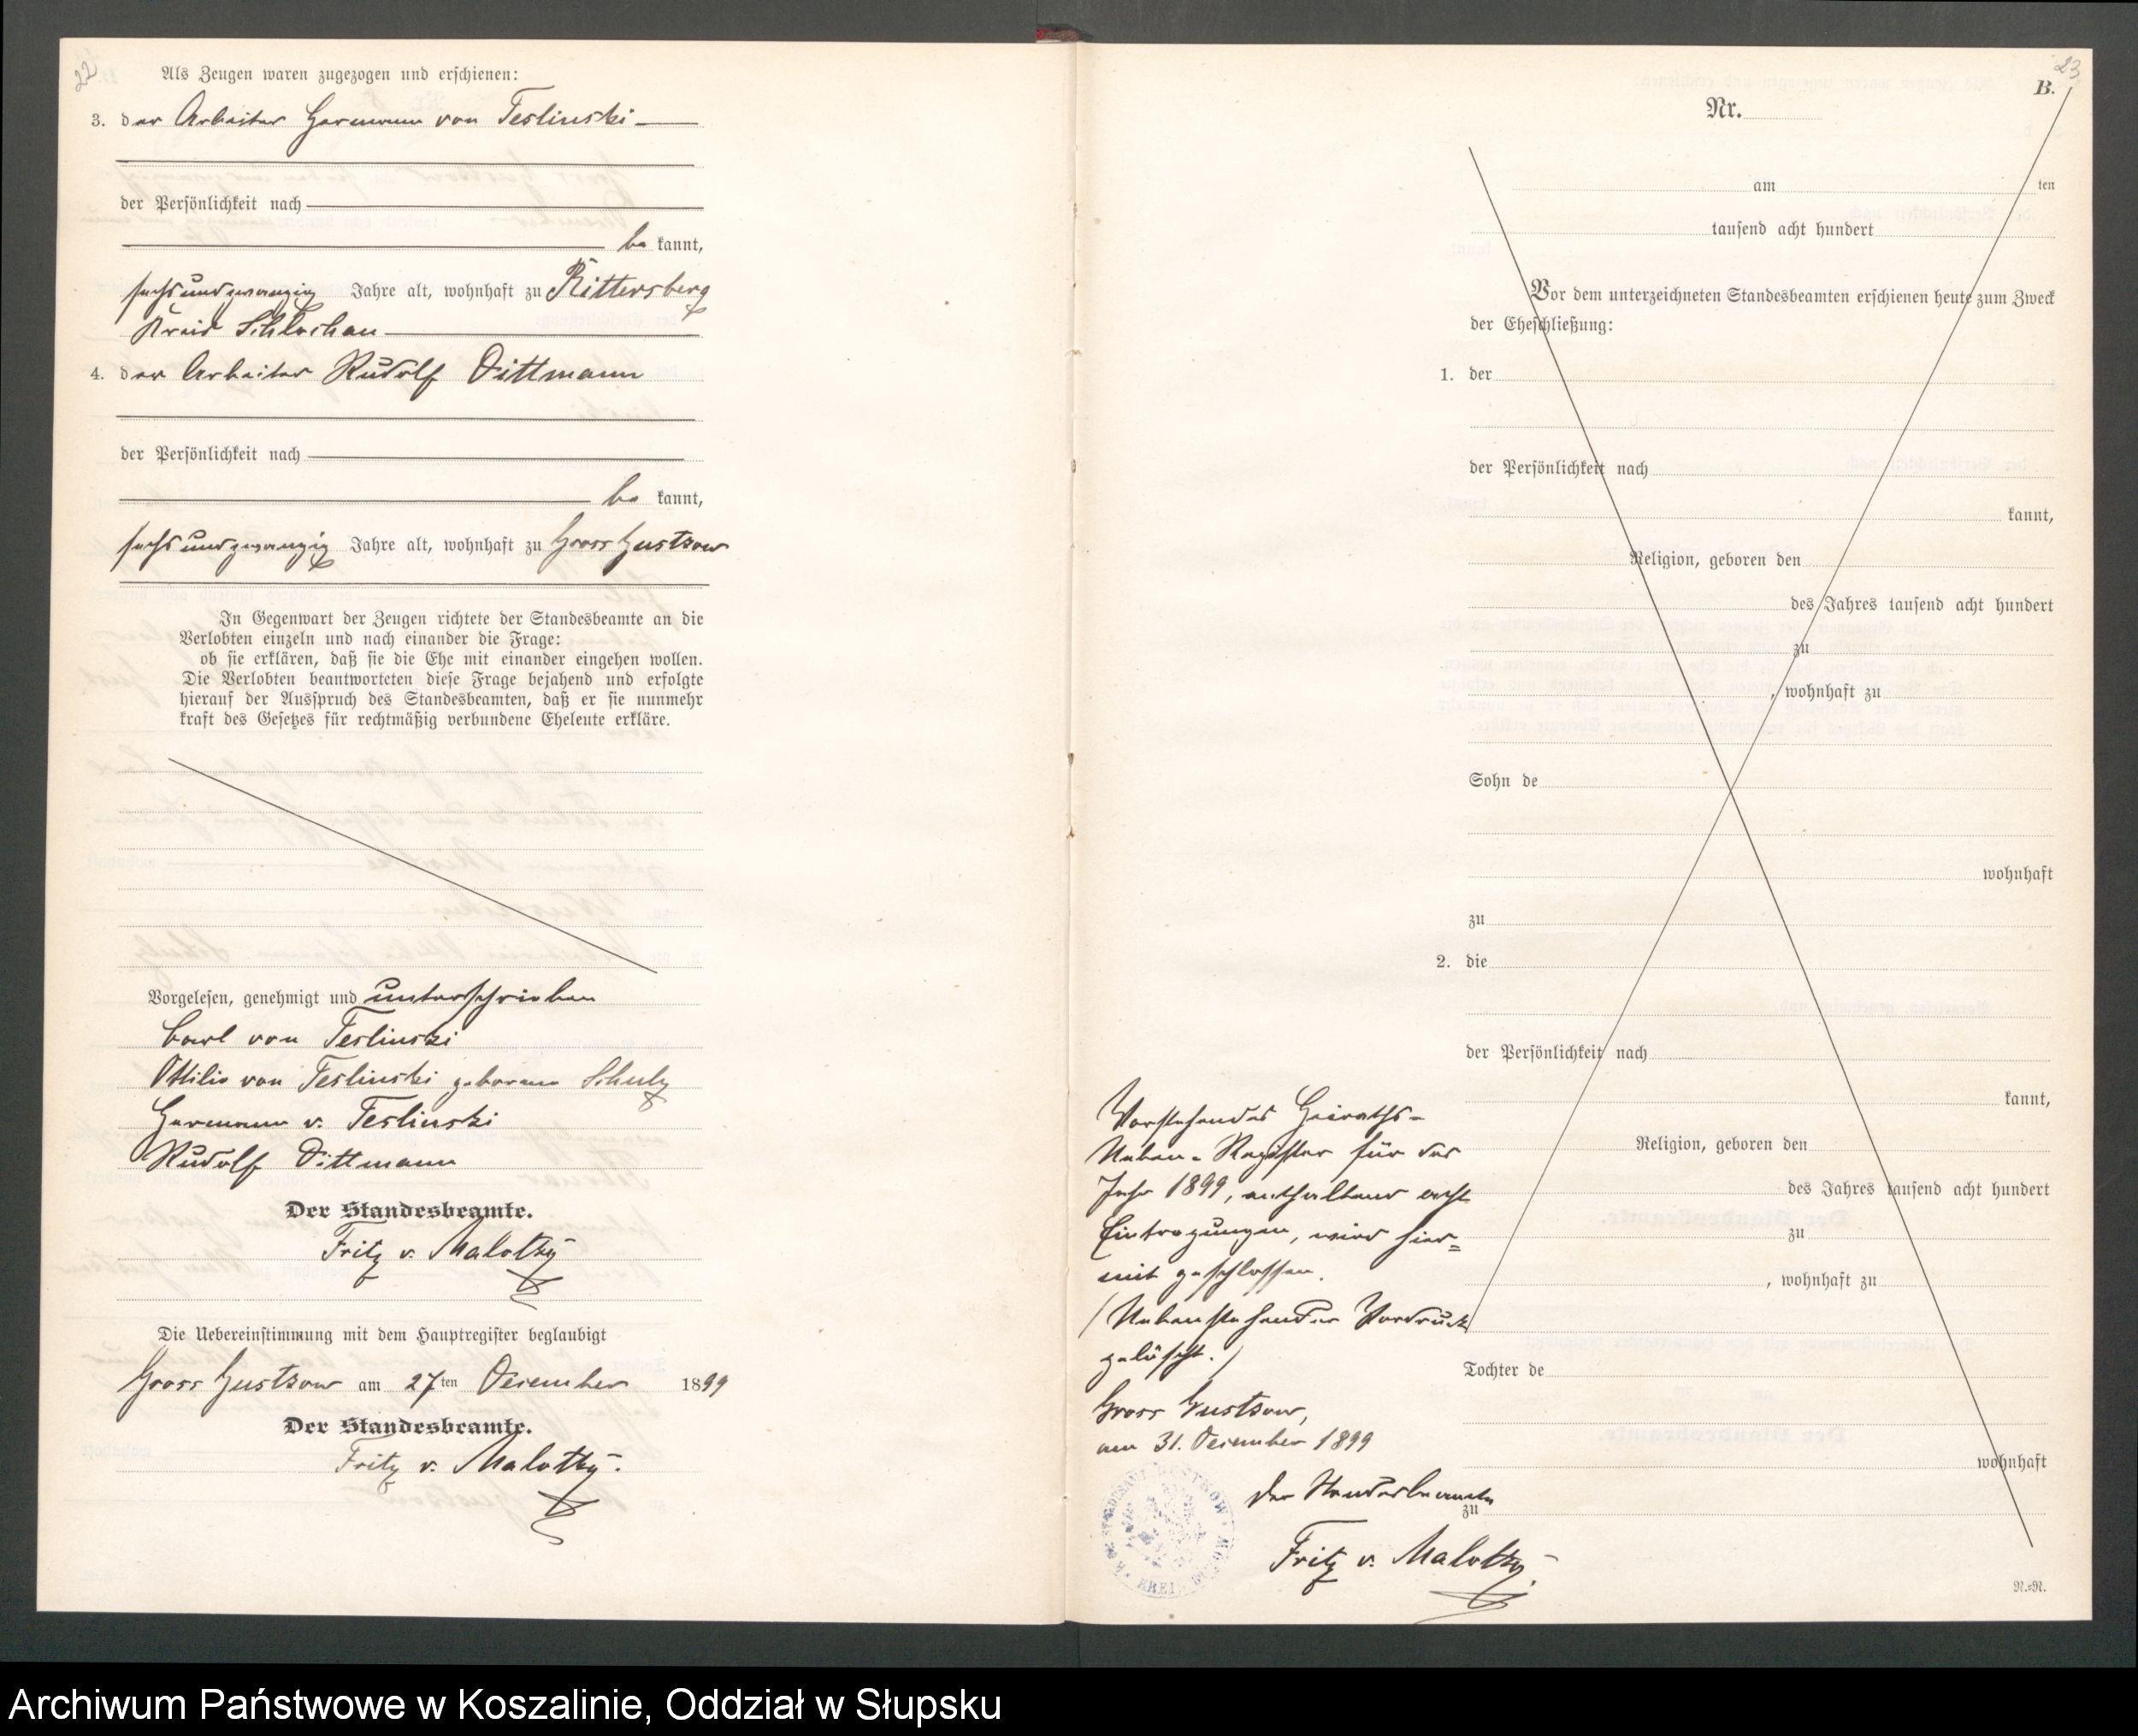 22
Als Zeugen waren zugezogen und erschienen:
3. der Arbeiter Hermann von Teslinski
der Persönlichkeit nach
be kannt,
sechsundzwanzig Jahre alt, wohnhaft zu Rittersberg
Kreis Schlochau
4. der Arbeiter Rudolf Dittmann
der Persönlichkeit nach
be kannt,
sechsundzwanzig Jahre alt, wohnhaft zu Gross Gustkow
In Gegenwart der Zeugen richtete der Standesbeamte an die
Verlobten einzeln und nach einander die Frage:
ob sie erklären, daß sie die Ehe mit einander eingehen wollen.
Die Verlobten beantworteten diese Frage bejahend und erfolgte
hierauf der Ausspruch des Standesbeamten, daß er sie nunmehr
kraft des Gesetzes für rechtmäßig verbundene Eheleute erkläre.
Vorgelesen, genehmigt und unterschrieben
Carl von Teslinski
Ottilie von Teslinski geborene Schulz
Hermann v. Teslinski
Rudolf Dittmann
Der Standesbeamte.
Fritz v. Malotky
Die Uebereinstimmung mit dem Hauptregister beglaubigt
Gross Gustkow am 27ten December 1899
Der Standesbeamte.
Fritz v. Malotky.
23
B.
Nr.
am ten
tausend acht hundert
Vor dem unterzeichneten Standesbeamten erschienen heute zum Zweck
der Eheschließung:
1. der
der Persönlichkeit nach
kannt,
Religion, geboren den
des Jahres tausend acht hundert
zu
, wohnhaft zu
Sohn de
wohnhaft
zu
2. die
der Persönlichkeit nach
kannt,
Religion, geboren den
des Jahres tausend acht hundert
zu
, wohnhaft zu
Tochter de
wohnhaft
zu
Vorstehendes Heiraths-
Neben-Register für das
Jahr 1899, enthaltend acht
Eintragungen, wird hier=
mit geschlossen.
(Nebenstehender Vordruck
gelöscht.)
Gross Gustkow,
am 31. December 1899
Der Standesbeamte
Fritz v. Malotky.
N.=N.
Archiwum Państwowe w Koszalinie, Oddział w Słupsku